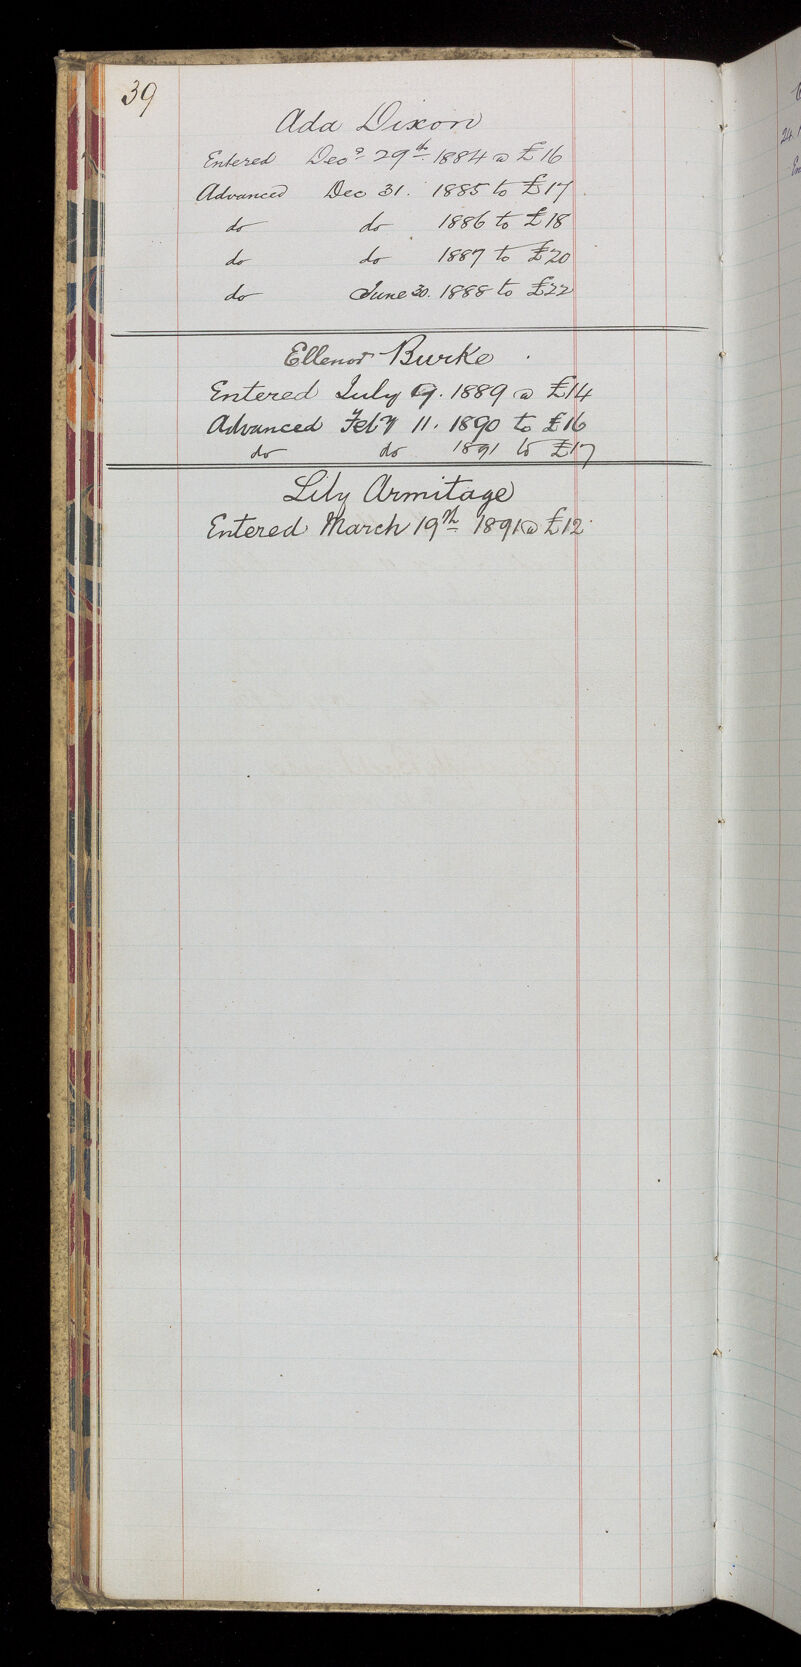 39
Ada Dixon
Entered Decr 29th 1884 @ £16
Advanced Dec 31. 1885 to £17
do do 1886 to £18
do do 1887 to £20
do June 30. 1888 to £22
Ellenor Burke
Entered July 9. 1889 @ £14
Advanced Feby 11. 1890 to £16
do do 1891 to £17
Lily Armitage
Entered March 19th 1891 @ £12